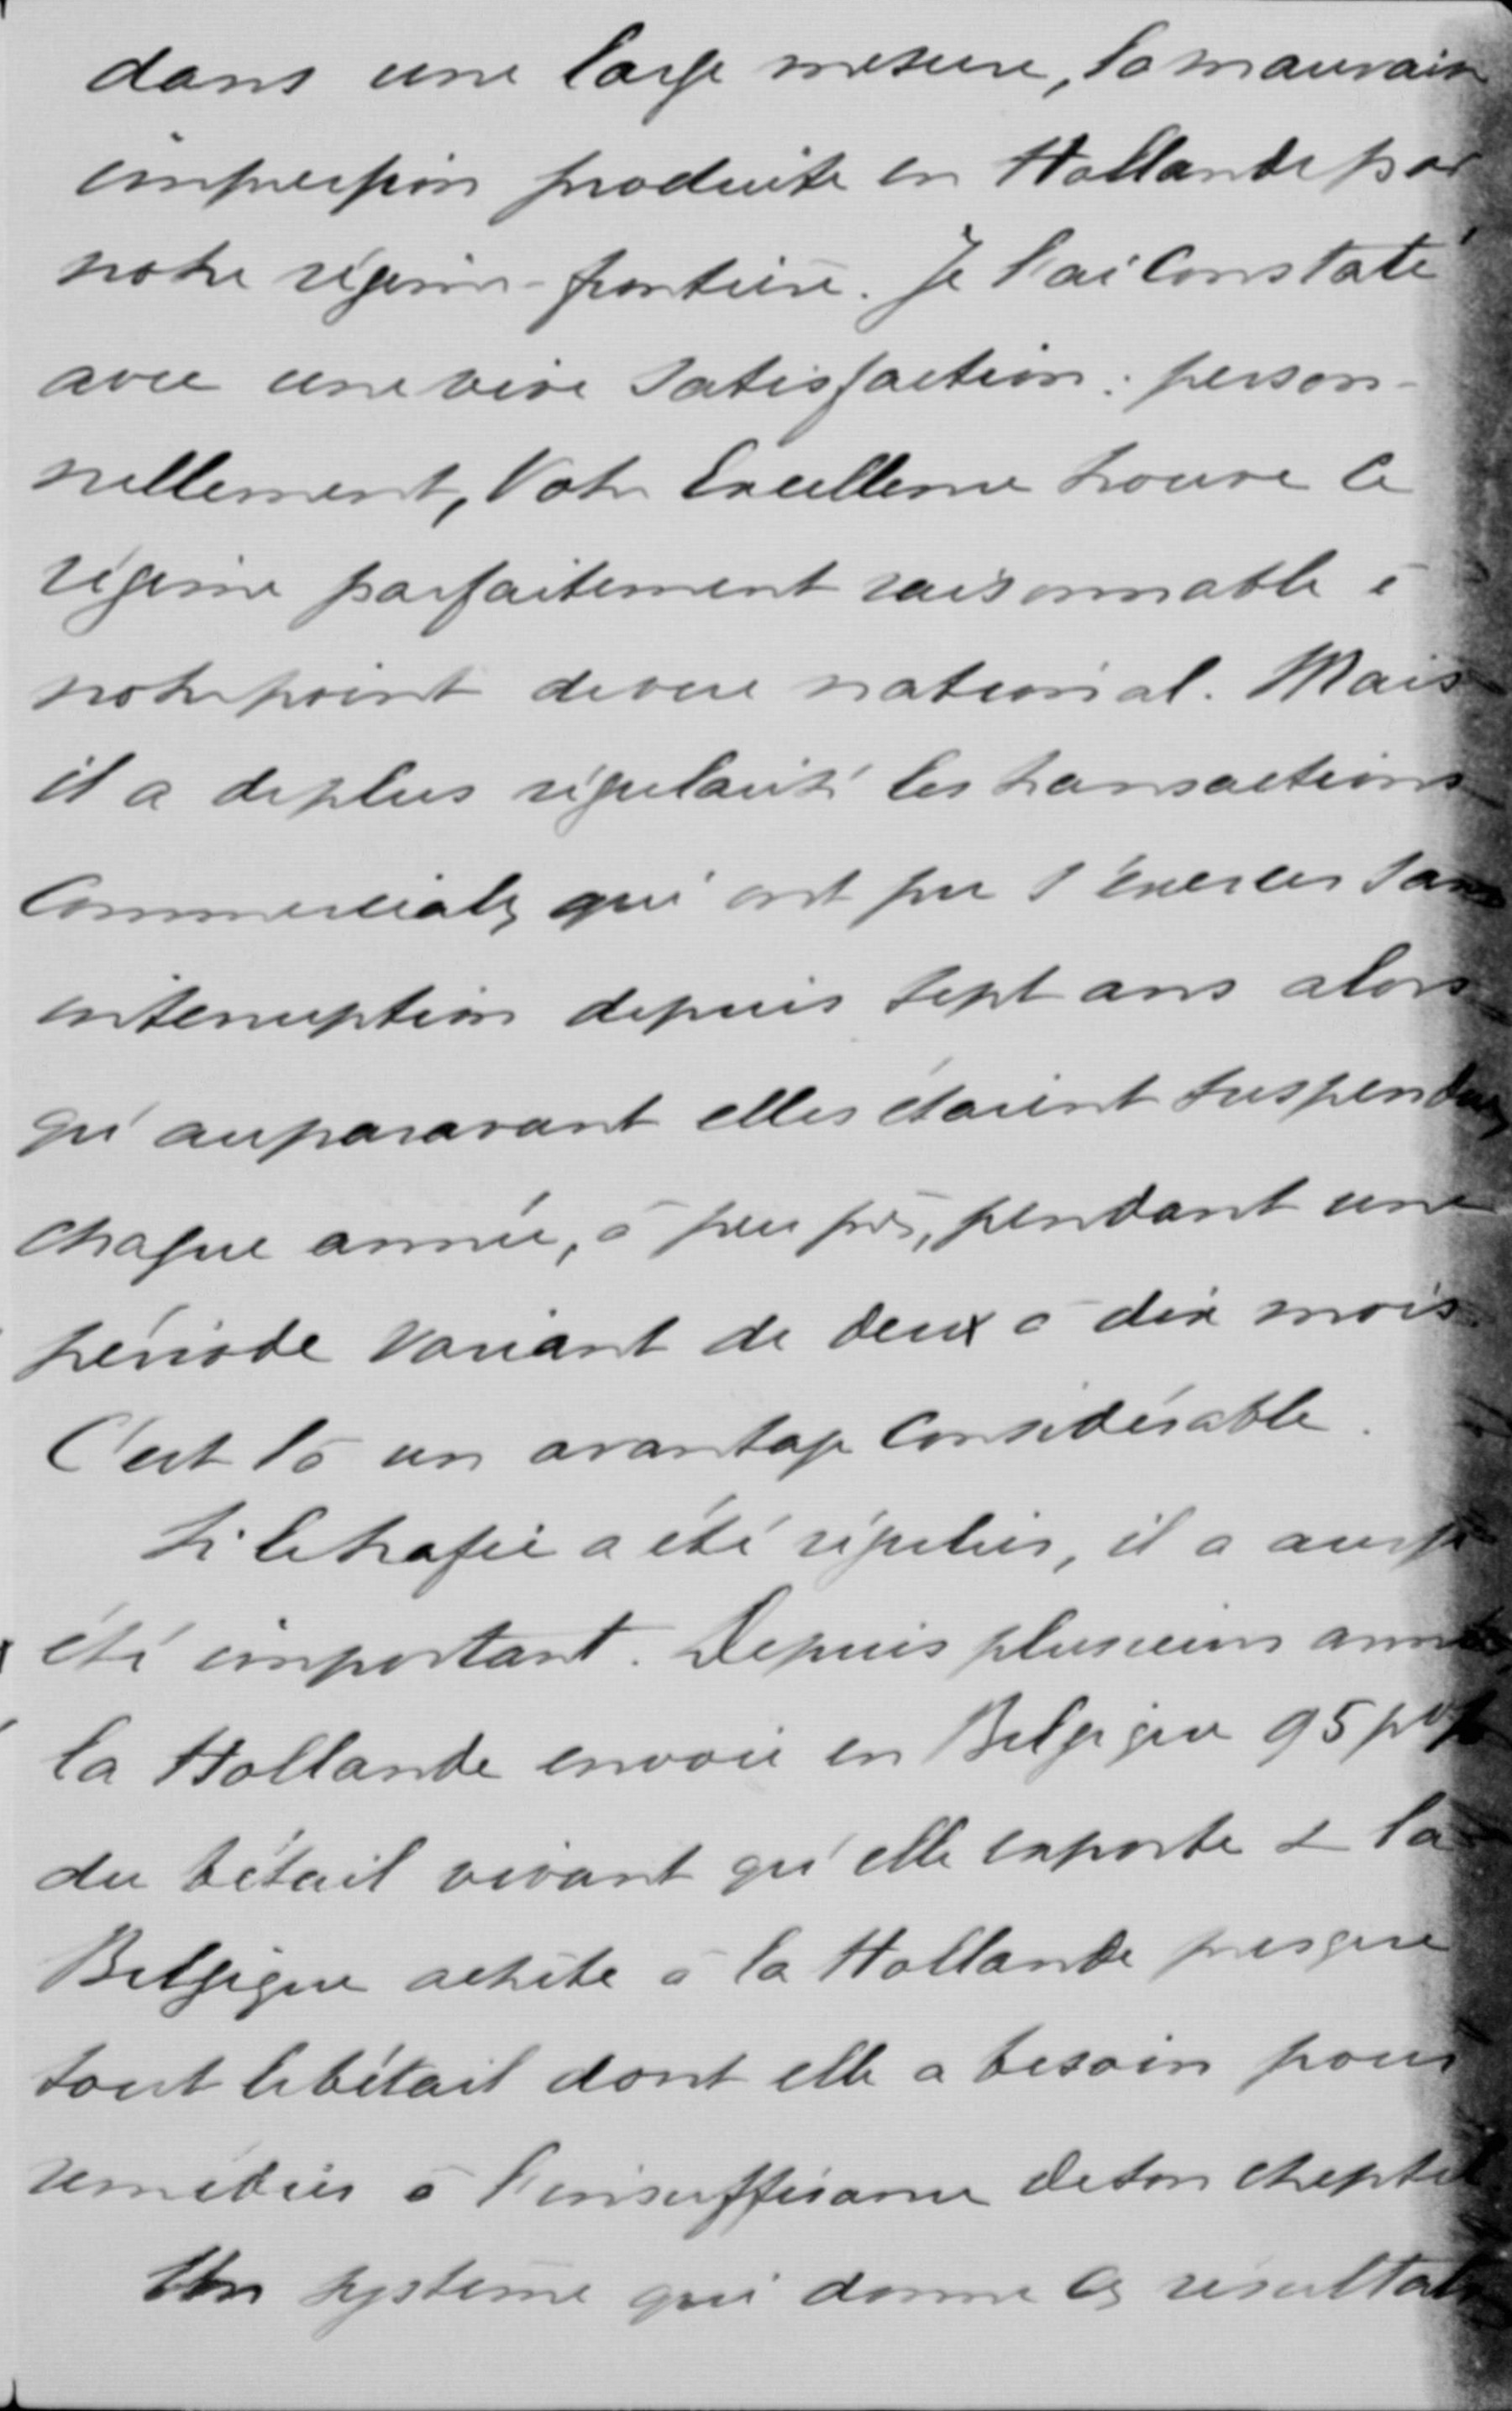 dans une large mesure, la mauvaise
impression produite en Hollande par
notre régime-frontière. Je l'ai constaté
avec une vive satisfaction : person-
nellement, Votre Excellence trouve ce
régime parfaitement raisonnable à
notre point de vue national. Mais
il a de plus régularisé les transactions
commerciales qui ont pu s'exercer sans
interruption depuis sept ans alors
qu'auparavant elles étaient suspendues
chaque année, à peu près, pendant une
période variant de deux à dix mois.
C'est là un avantage considérable.
Si le trafic a été régulier, il a aussi
été important. Depuis plusieurs années
la Hollande envoie en Belgique 95 p%
du bétail vivant qu'elle exporte & la
Belgique achète à la Hollande presque
tout le bétail dont elle a besoin pour
remédier à l'insuffisance de son cheptel
Un système qui donne ces résultats